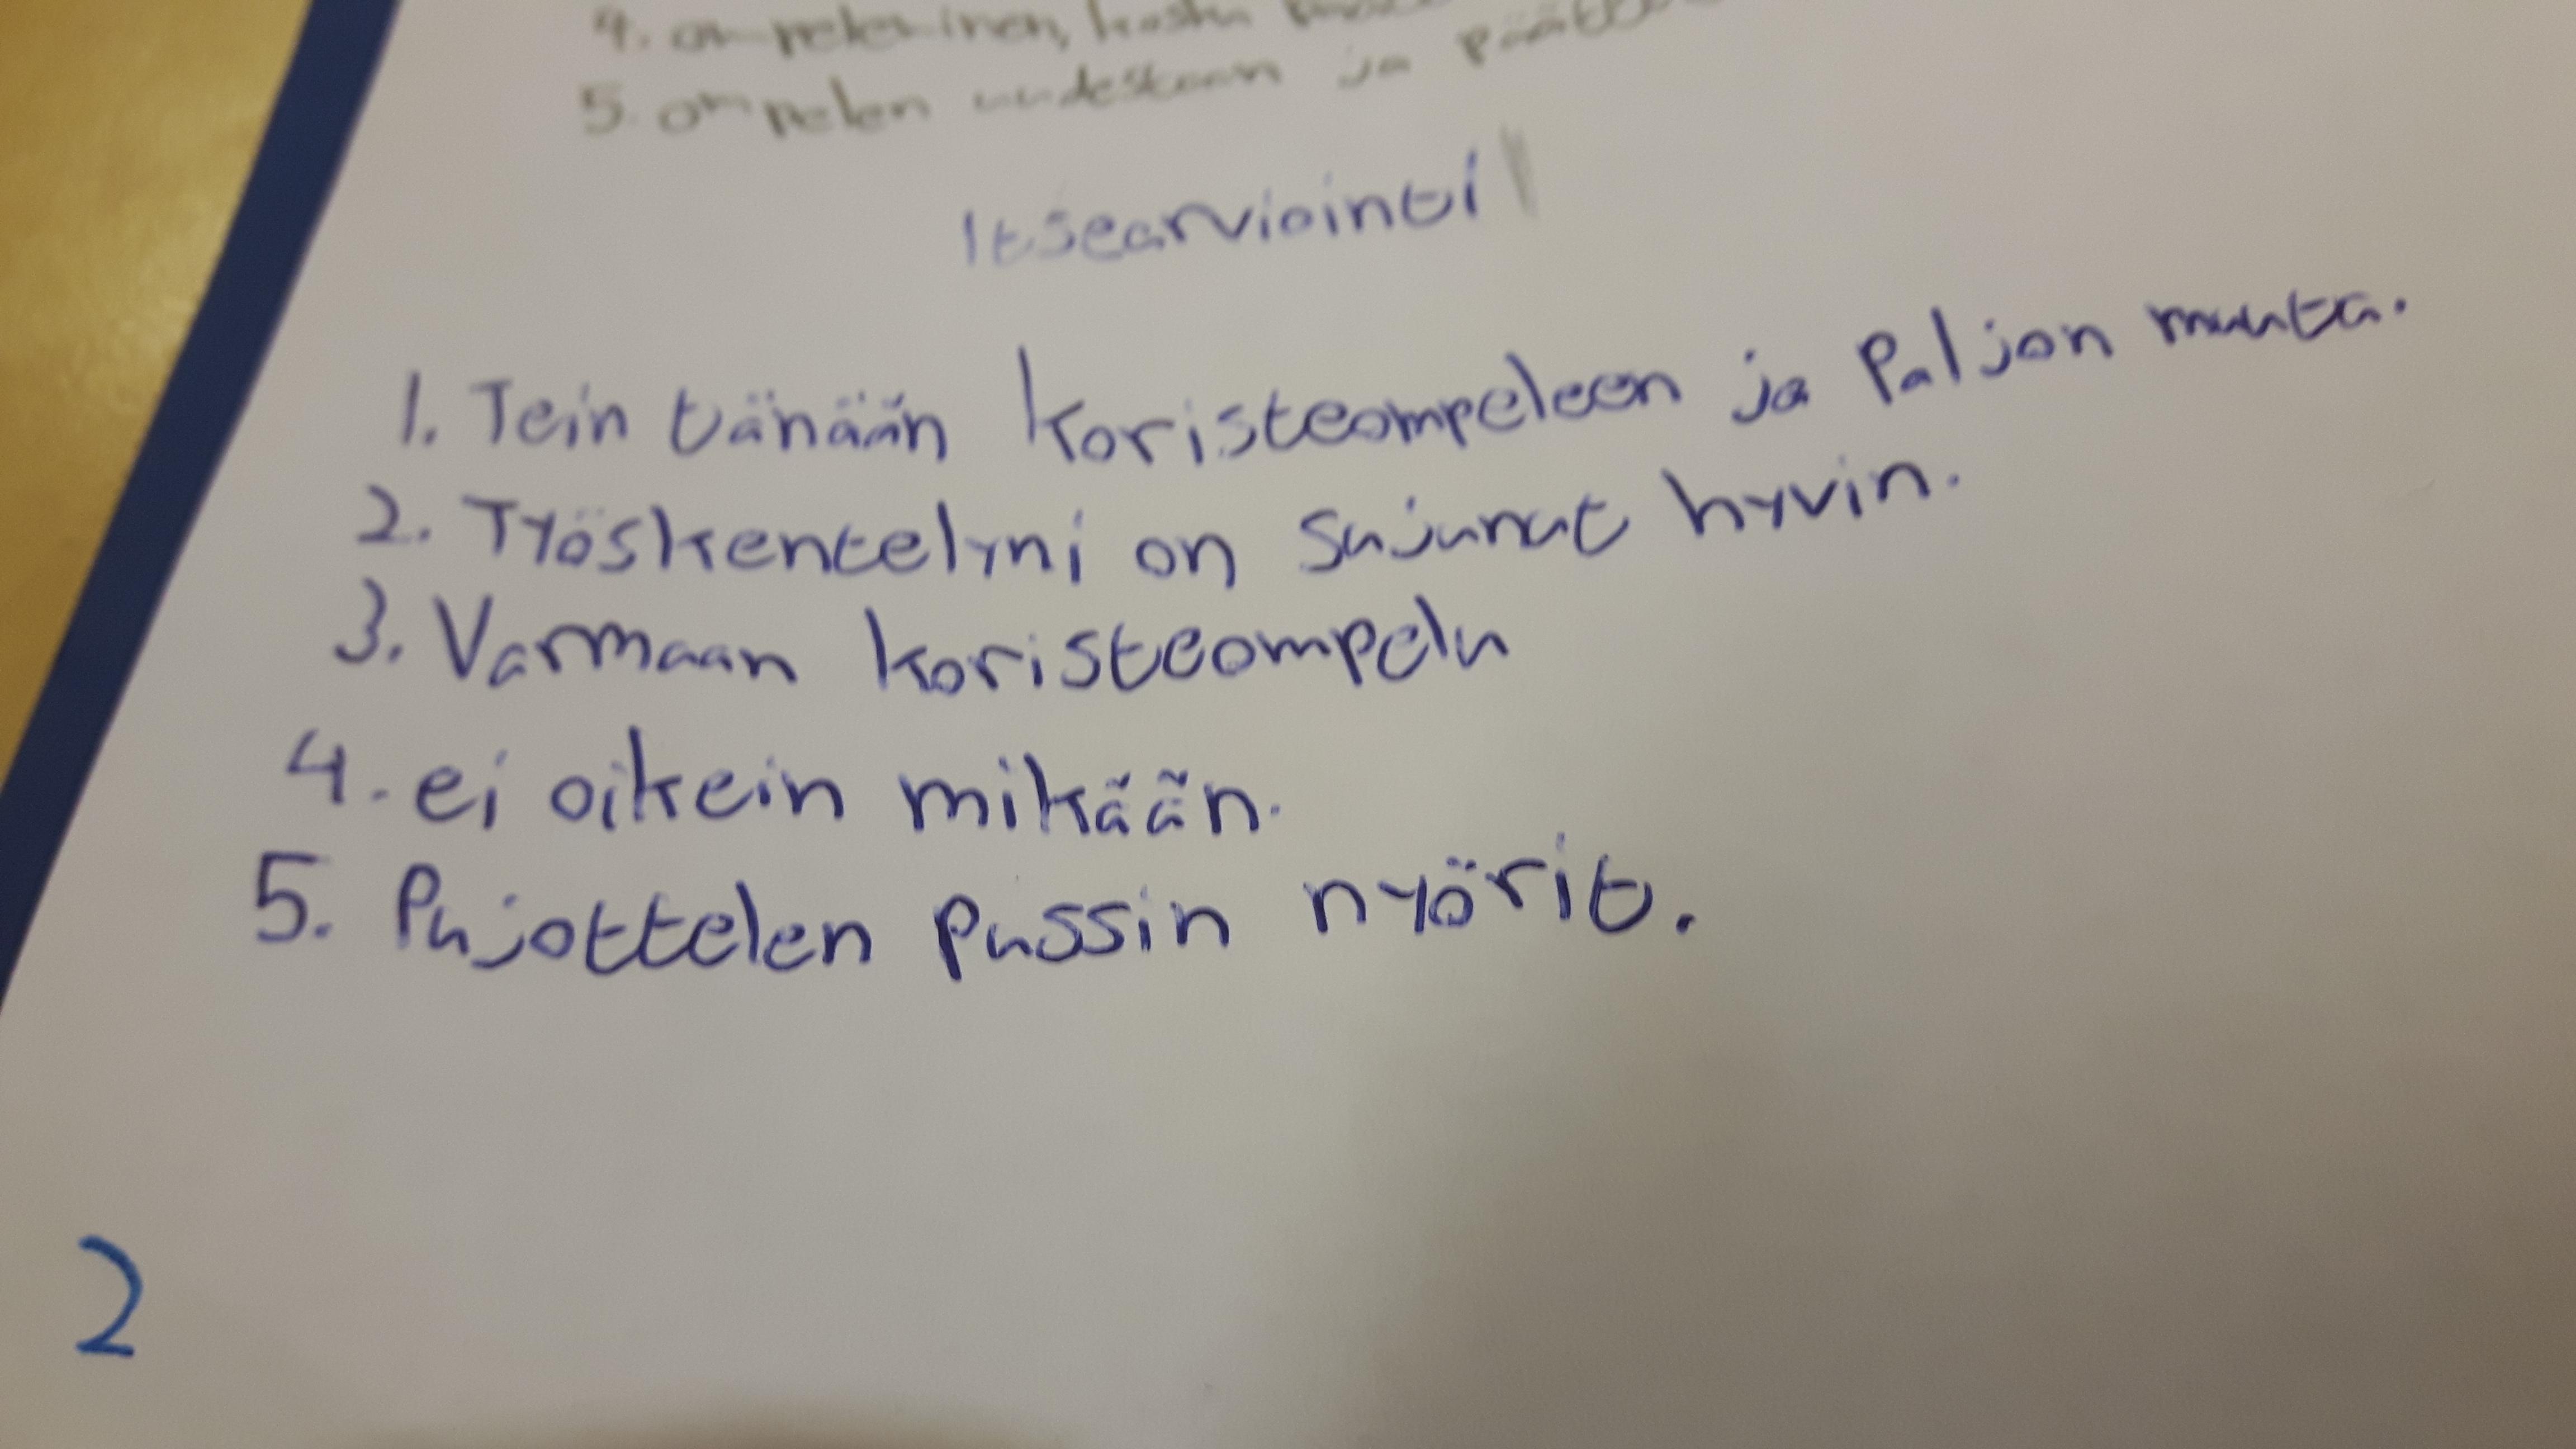 4. ompeleminen, koska
5. ompelen uudestaan ja
Itsearviointi
1. Tein tänään koristeompeleen ja Paljon muuta.
2. Työskentelyni on sujunut hyvin.
3. Varmaan koristeompelu
4. ei oikein mikään.
5. Pujottelen pussin nyörit.
2